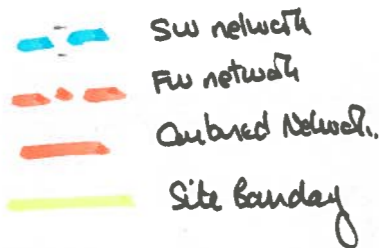 SW network
FW network
Combined Network.
Site Boundary